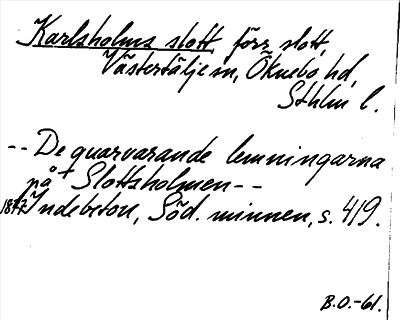 Karlsholms slott, förr slott,
Västertälje sn, Öknebo hd,
Sthlm l.
-- De quarvarande lemningarna
på Slottsholmen --
1877 Indebetou, Söd. minnen, s. 419.
B.O.-61.